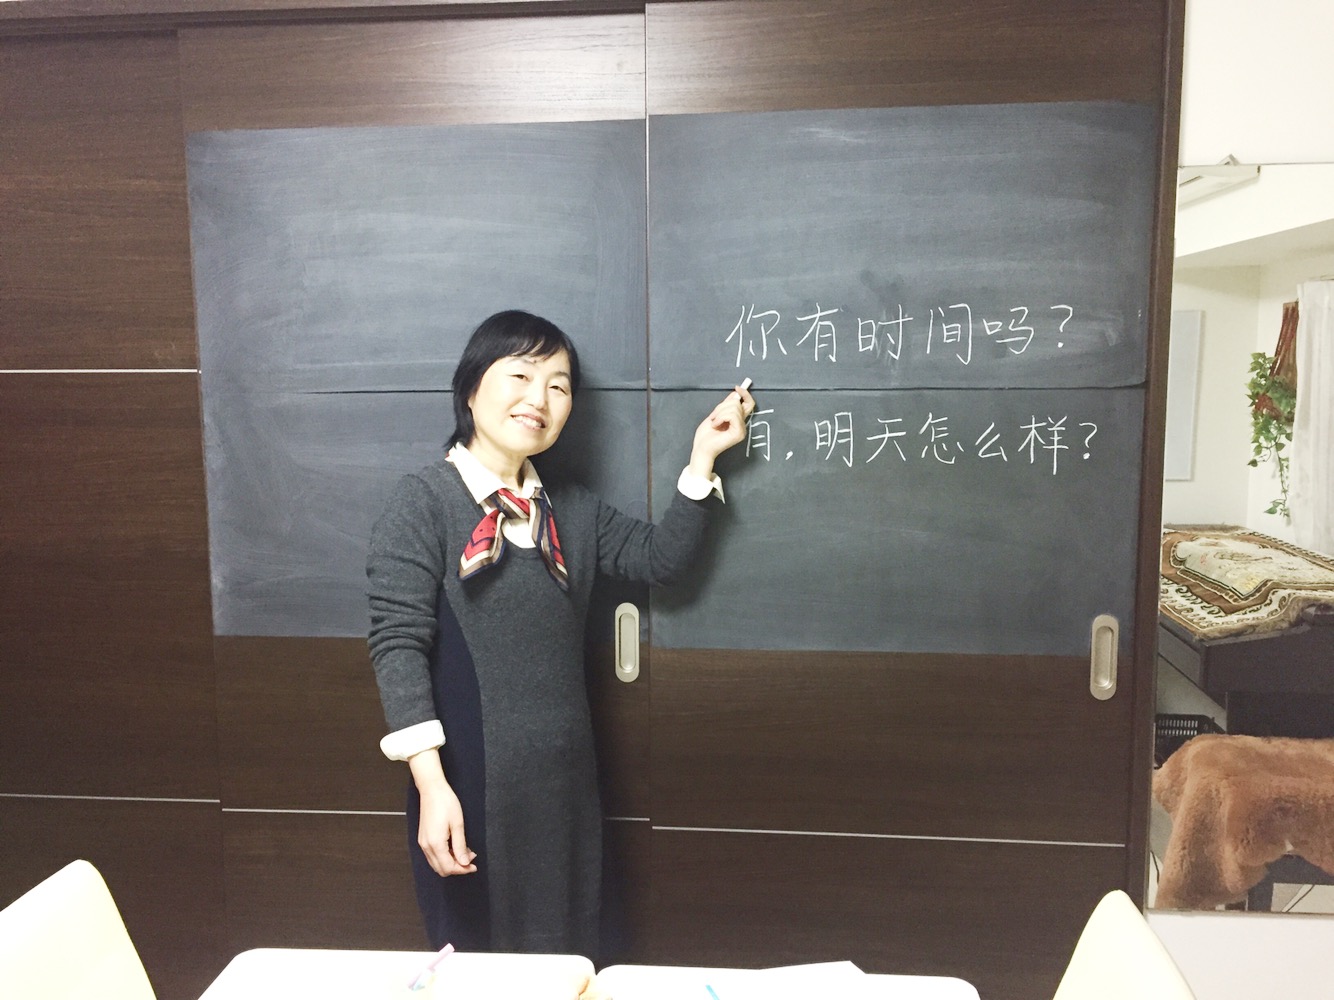 你有时间吗？
有，明天怎么样？